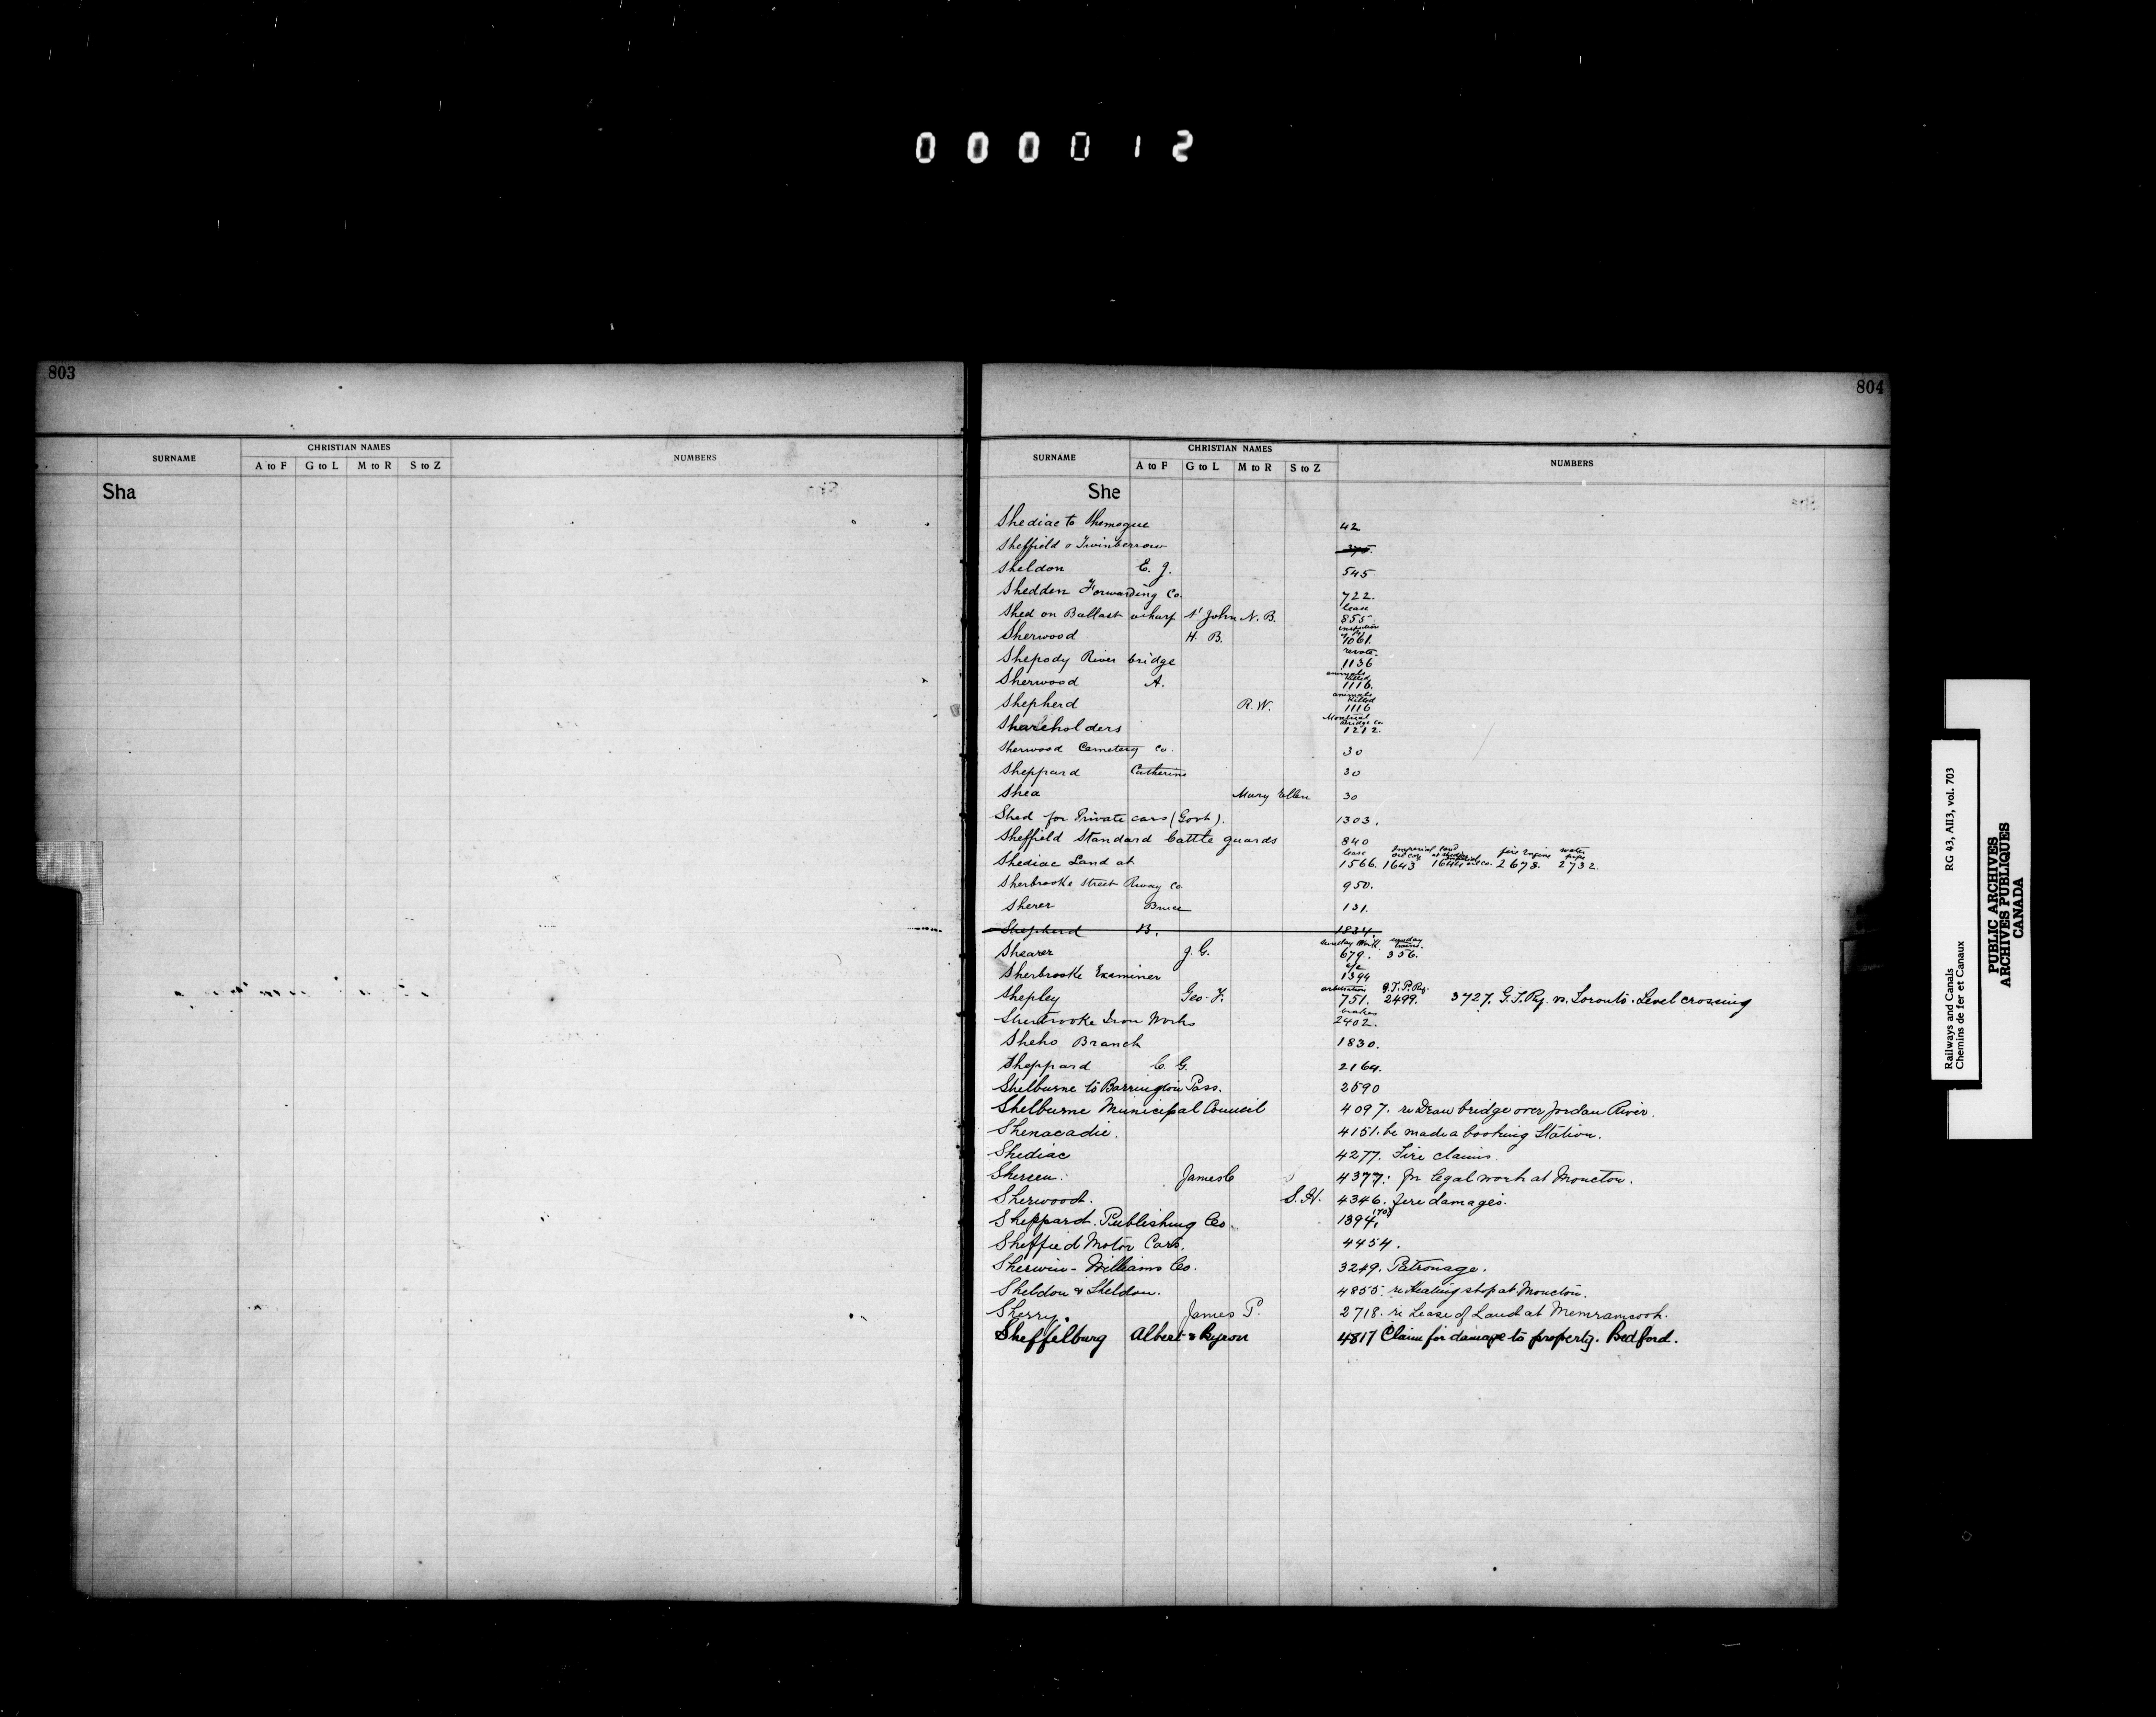 000012
803
SURNAME CHRISTIAN NAMES NUMBERS
A to F G to L M to R S to Z
Sha
804
SURNAME CHRISTIAN NAMES NUMBERS
A to F G to L M to R S to Z
She
Shediac to Shemogue 42
Sheffield & Twinberrow
Sheldon E. J. 545
Shedden Forwarding Co. 722.
Shed on Ballast wharf St John N. B. lease 855
Sherwood H. B. 1061.
Shepody River bridge 1136
Sherwood A. animals killed 1116.
Shepherd R. W. animals killed 1116
Shareholders Montreal Bridge Co. 1212.
Sherwood Cemetery Co. 30
Sheppard Catherine 30
Shea Mary Ellen 30
Shed for Private cars (Govt). 1303.
Sheffield Standard Cattle guards 840
Shediac Land at lease 1566. Imperial oil Co. 1643 1644 fire Engine 2678. water pipe 2732.
Sherbrooke Street Rway Co. 950.
Sherer Bruce 131.
Shepherd B. 1834.
Shearer J. G. Sunday Work 679. Sunday trains 356.
Sherbrooke Examiner a/c 1394
Shepley Geo. F. arbitration 751. G.T.P.Ry. 2499. 3727. G.T.Ry. vs. Toronto. Level crossing
Sherbrooke Iron Works brakes 2402.
Sheho Branch 1830.
Sheppard C. G. 2164.
Shelburne to Barrington Pass. 2590
Shelburne Municipal Council 4097. re Draw bridge over Jordan River.
Shenacadie. 4151. be made a booking Station.
Shediac 4277. Fire claims.
Shereen. James C 4377. for legal work at Moncton.
Sherwood. S. H. 4346. fire damages.
Sheppard Publishing Co. 1394.
Sheffied Motor Cars. 4454.
Sherwin-Williams Co. 3249. Patronage.
Sheldon & Sheldon. 4855. re Heating shop at Moncton.
Sherry. James P. 2718. re Lease of Land at Memramcook.
Sheffelburg Albert & Byron 4817 Claim for damage to property. Bedford.
Railways and Canals RG 43, AII3, vol. 703
Chemins de fer et Canaux
PUBLIC ARCHIVES
ARCHIVES PUBLIQUES
CANADA